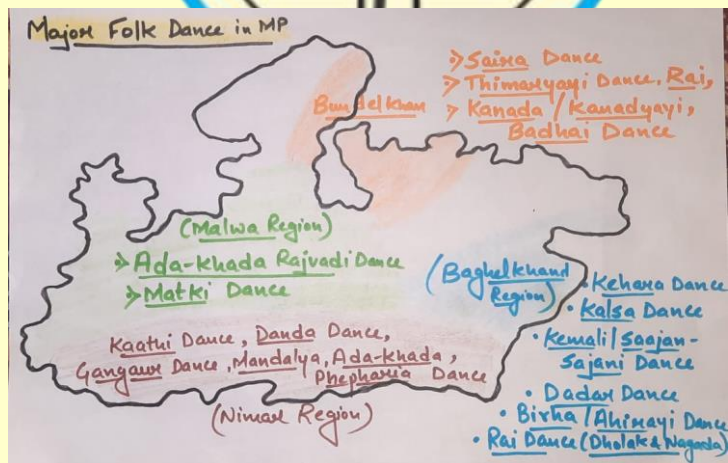 Major Folk Dance in MP
Bundelkhan
> Saira Dance
> Thimaryayi Dance, Rai,
> Kanada / Kanadyayi,
Badhai Dance
(Malwa Region)
> Ada-khada Rajvadi Dance
> Matki Dance
(Baghelkhand
Region)
• Kehara Dance
• Kalsa Dance
• Kemali / Saajan-
Sajani Dance
• Dadar Dance
• Birha / Ahirayi Dance
• Rai Dance (Dholak & Nagada)
Kaathi Dance, Danda Dance,
Gangaur Dance, Mandalya, Ada-khada,
Phepharia Dance
(Nimar Region)